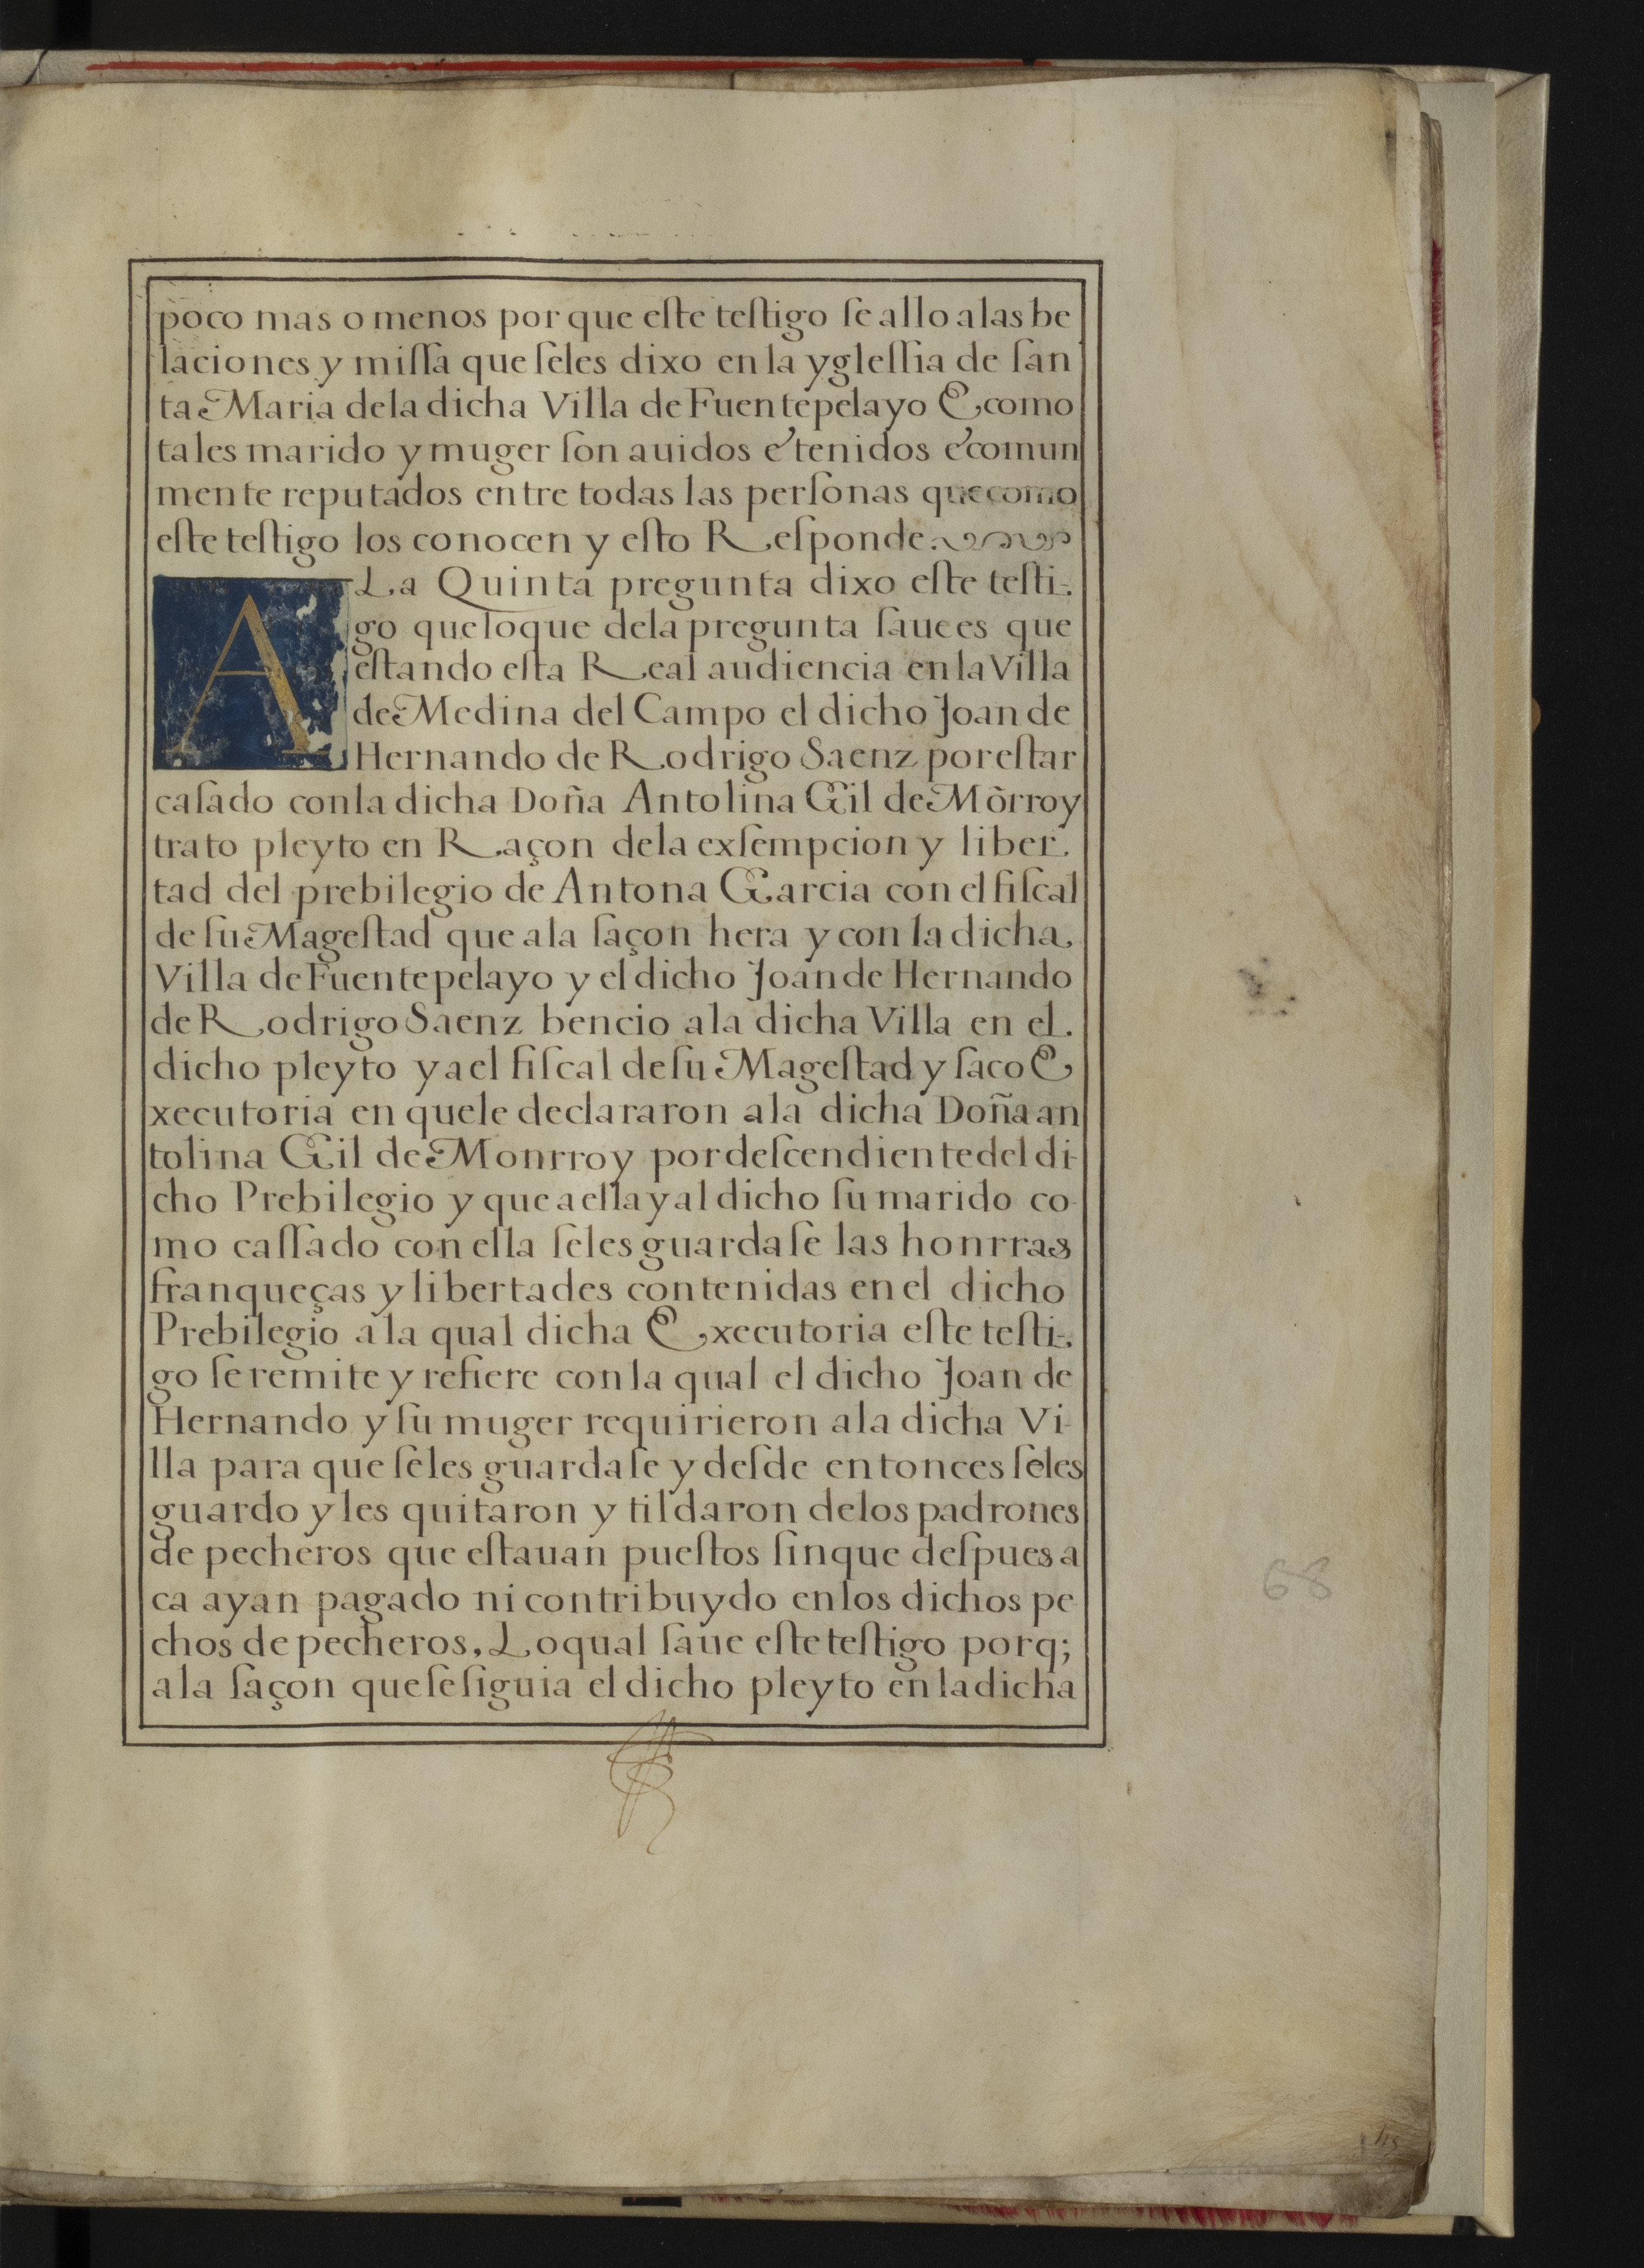 poco mas o menos por que eſte teſtigo ſe allo alas be
laciones y miſſa que ſeles dixo en la ygleſſia de ſan
ta Maria dela dicha Villa de Fuentepelayo E como
tales marido y muger ſon auidos e tenidos e comun
mente reputados entre todas las perſonas que como
eſte teſtigo los conocen y eſto Reſponde.
A La Quinta pregunta dixo eſte teſti-
go que loque dela pregunta ſaue es que
eſtando eſta Real audiencia en la Villa
de Medina del Campo el dicho Joan de
Hernando de Rodrigo Saenz por eſtar
caſado conla dicha Doña Antolina Gil de Mõrroy
trato pleyto en Raçon dela exſempcion y liber
tad del prebilegio de Antona Garcia con el fiſcal
de ſu Mageſtad que ala ſaçon hera y con la dicha
Villa de Fuentepelayo y el dicho Joan de Hernando
de Rodrigo Saenz bencio ala dicha Villa en el
dicho pleyto y a el fiſcal de ſu Mageſtad y ſaco E
xecutoria en quele declararon ala dicha Doña an
tolina Gil de Monrroy por deſcendiente del di-
cho Prebilegio y que a ella y al dicho ſu marido co-
mo caſſado con ella ſeles guardaſe las honrras
franqueças y libertades contenidas en el dicho
Prebilegio a la qual dicha Executoria eſte teſti-
go ſe remite y refiere con la qual el dicho Joan de
Hernando y ſu muger requirieron ala dicha Vi-
lla para que ſeles guardaſe y deſde entonces ſeles
guardo y les quitaron y tildaron delos padrones
de pecheros que eſtauan pueſtos ſinque deſpues a
ca ayan pagado ni contribuydo en los dichos pe
chos de pecheros, Lo qual ſaue eſte teſtigo porq;
ala ſaçon que ſe ſiguia el dicho pleyto en la dicha
68